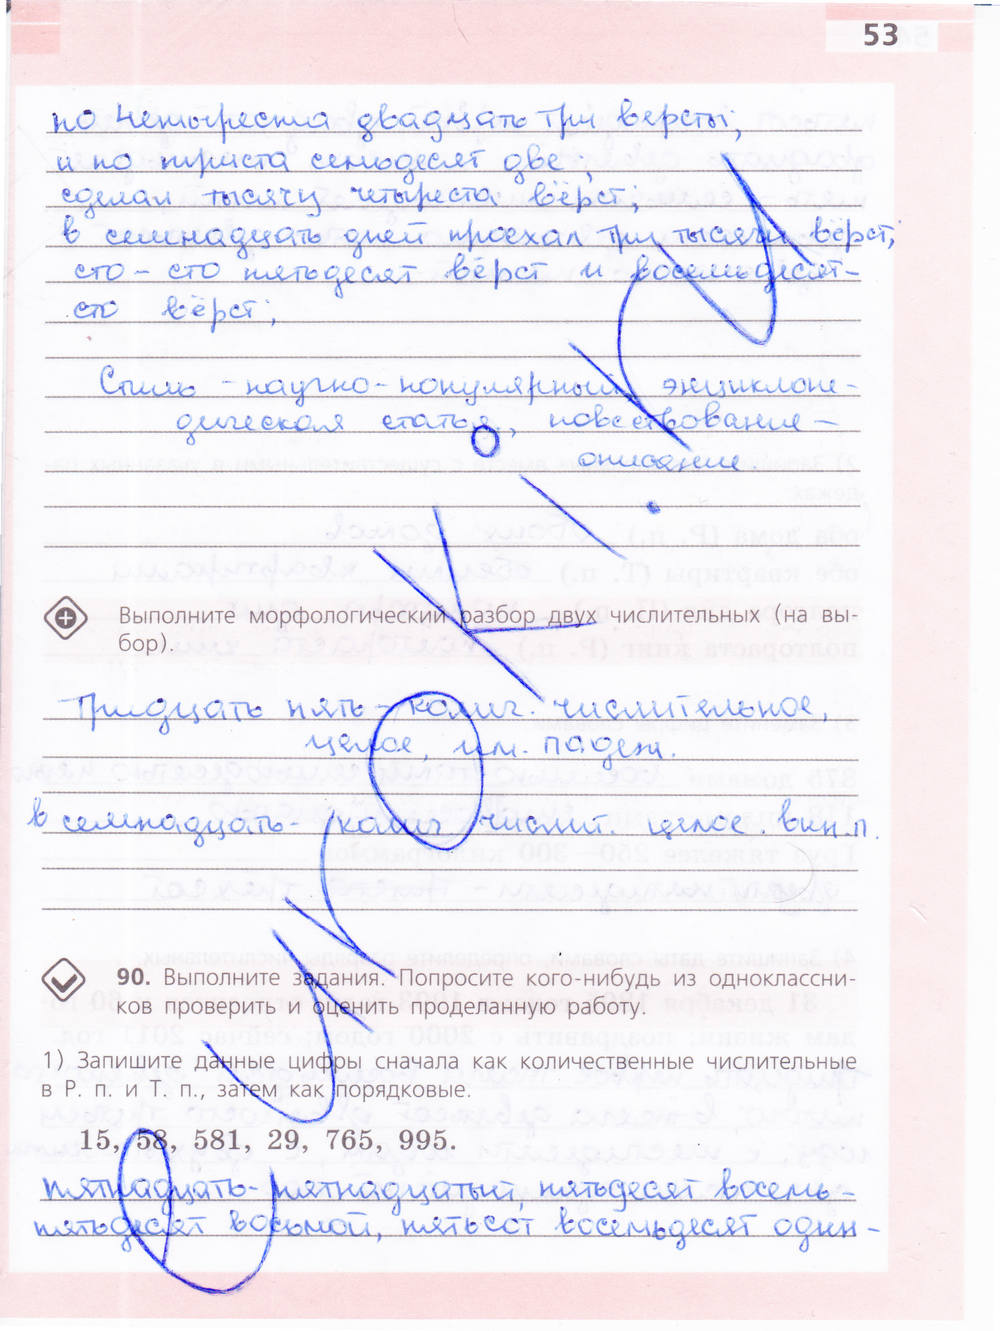 53
по четыреста двадцать три версты,
и по триста семьдесят две;
сделал тысячу четыреста вёрст;
в семнадцать дней проехал три тысячи вёрст,
сто-сто пятьдесят вёрст и восемьдесят-
сто вёрст;
Стиль - научно-популярный, энциклопе-
дическая статья, повествование-
описание
Выполните морфологический разбор двух числительных (на вы-
бор).
Тридцать пять - колич. числительное,
целое, им. падеж.
в семнадцать - колич числит. целое. вин.п.
90. Выполните задания. Попросите кого-нибудь из одноклассни-
ков проверить и оценить проделанную работу.
1) Запишите данные цифры сначала как количественные числительные
в Р. п. и Т. п., затем как порядковые.
15, 58, 581, 29, 765, 995.
пятнадцать- пятнадцатый, пятьдесят восемь-
пятьдесят восьмой, пятьсот восемьдесят один-